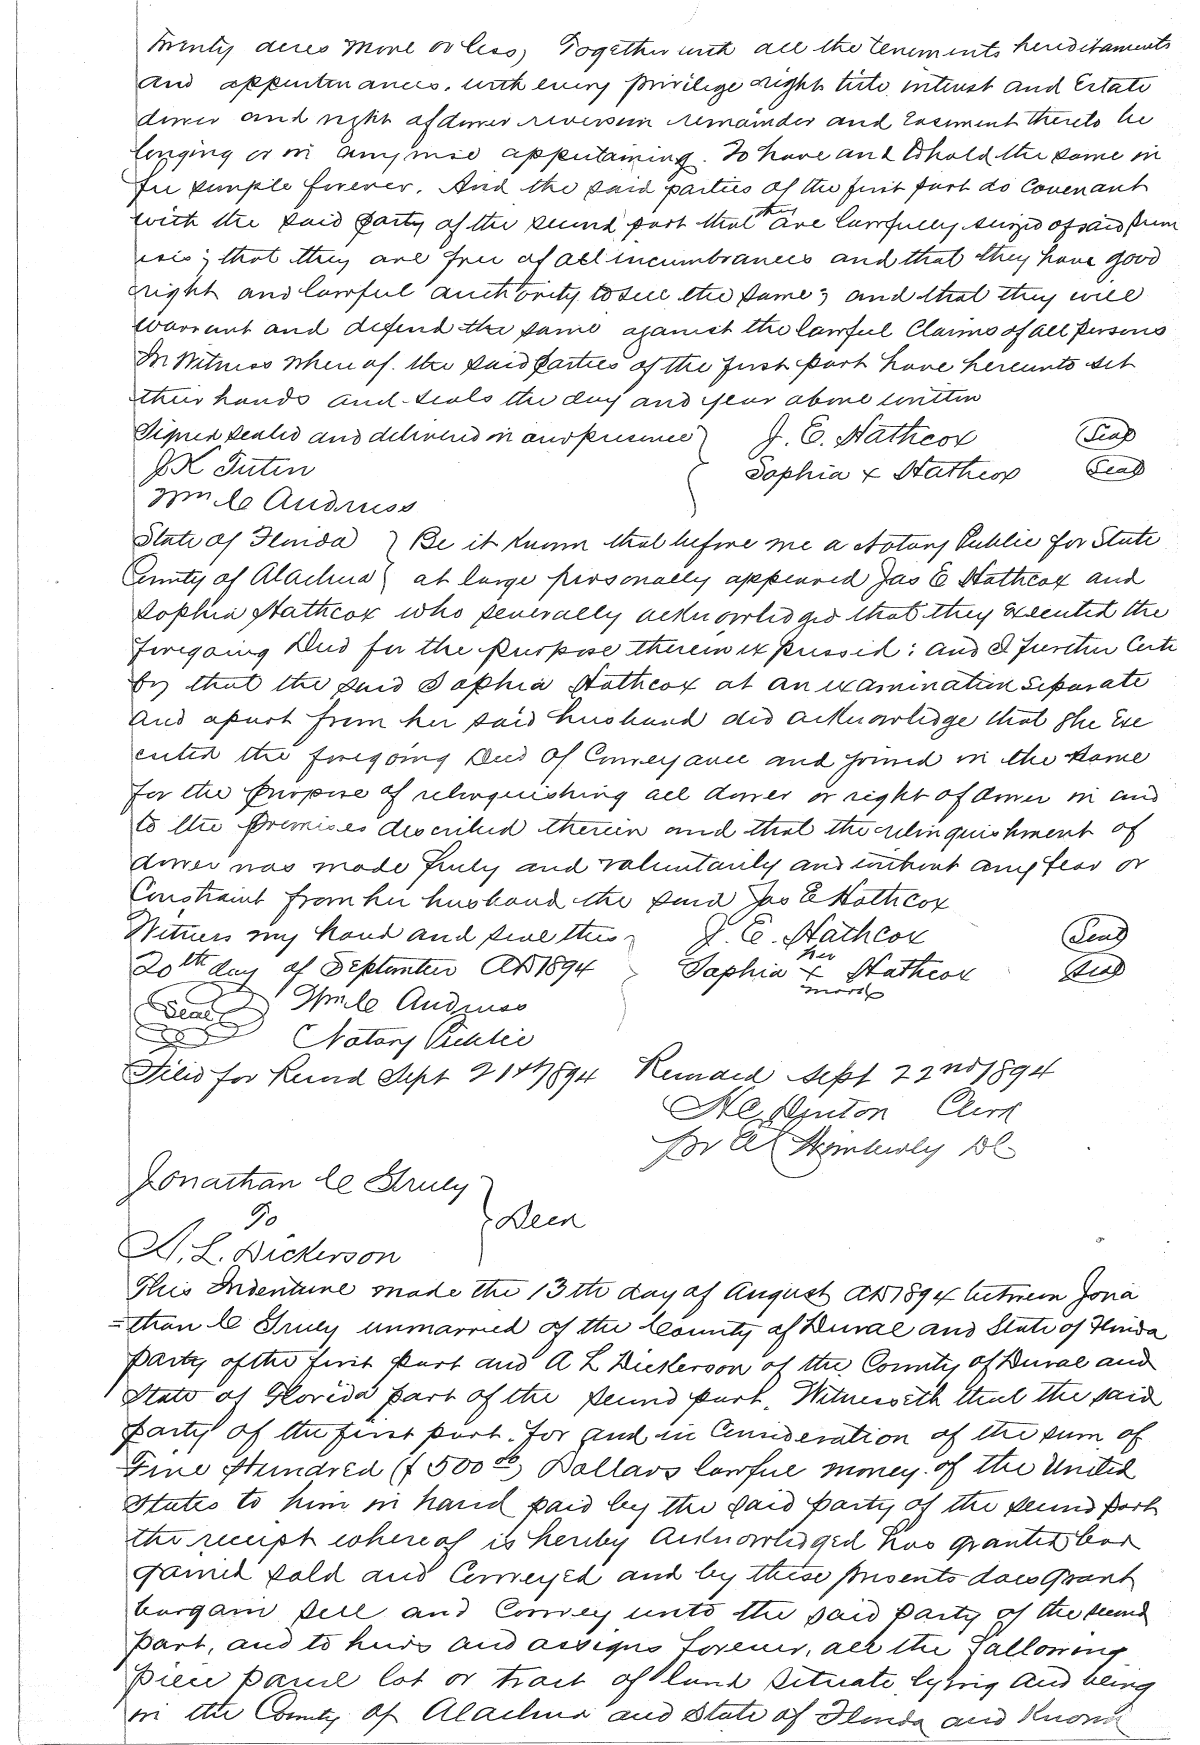 Twenty acres more or less, Together with all the tenements hereditaments
and appurtenances, with every privilege right title interest and Estate
dower and right of dower reversion remainder and Easement thereto be
longing or in anywise appertaining. To have and to hold the same in
fee simple forever. And the said parties of the first part do covenant
with the said party of the second part that they are lawfully seized of said prem
ises; that they are free of all incumbrances and that they have good
right and lawful authority to sell the same; and that they will
warrant and defend the same against the lawful Claims of all persons
In Witness where of the said parties of the first part have hereunto set
their hands and seals the day and year above written
Signed sealed and delivered in our presence } J. E. Hathcox (Seal)
J K Tuten { Sophia x Hathcox (Seal)
Wm C Andruss
State of Florida } Be it Known that before me a Notary Public for State
County of Alachua } at large personally appeared Jas E Hathcox and
Sophia Hathcox who severally acknowledged that they executed the
foregoing Deed for the purpose therein expressed: and I further Certi
fy that the said Sophia Hathcox at an examination separate
and apart from her said husband did acknowledge that she Exe
cuted the foregoing Deed of Conveyance and joined in the same
for the purpose of relinquishing all dower or right of dower in and
to the premises described therein and that the relinquishment of
dower was made freely and voluntarily and without any fear or
Constraint from her husband the said Jas E Hathcox
Witness my hand and seal this } J. E. Hathcox (Seal)
20th day of September AD 1894 } Sophia her x mark Hathcox (Seal)
(Seal) Wm C Andruss
Notary Public
Filed for Record Sept 21st 1894 Recorded Sept 22nd 1894
H C Denton Clerk
pr Wimberly DC
Jonathan C Greley }
To } Deed
A. L. Dickerson
This Indenture made the 13th day of August AD 1894 between Jona
=than C Greley unmarried of the County of Duval and State of Florida
party of the first part and A L Dickerson of the County of Duval and
State of Florida part of the second part, Witnesseth that the said
party of the first part, for and in Consideration of the sum of
Five Hundred ($500 00) Dollars lawful money of the United
States to him in hand paid by the said party of the second part
the receipt whereof is hereby acknowledged has granted bar
gained sold and Conveyed and by these presents does grant
bargain sell and Convey unto the said party of the second
part, and to heirs and assigns forever, all the following
piece parcel lot or tract of land situate lying and being
in the County of Alachua and State of Florida and Known